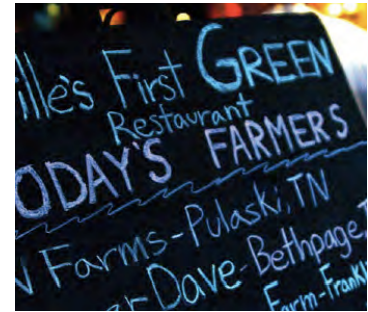 ille's First GREEN
Restaurant
ODAY'S FARMERS
Farms-Pulaski, TN
er Dave-Bethpage, T
Farm-Frankl